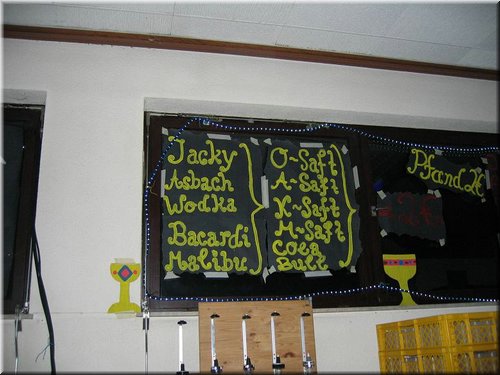 Jacky
Asbach
Wodka
Bacardi
Malibu
O-Saft
A-Saft
K-Saft
M-Saft
Cola
Bull
Pfand
2€